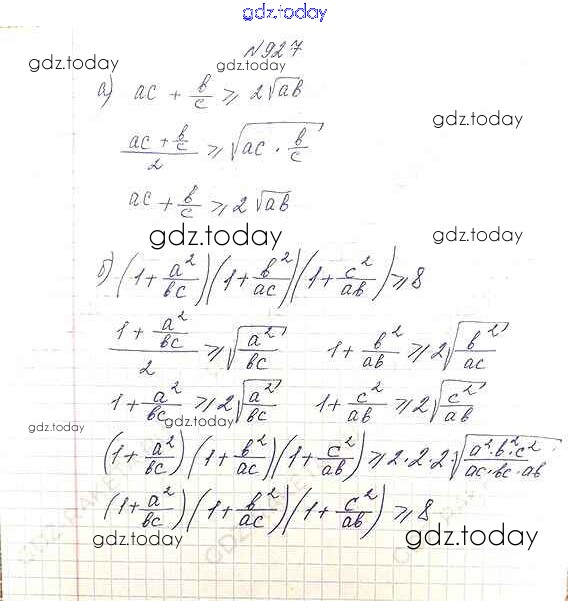 gdz.today
N927
gdz.today gdz.today
а) ac + b/c ⩾ 2√ab
gdz.today
(ac + b/c)/2 ⩾ √(ac · b/c)
ac + b/c ⩾ 2√ab
gdz.today gdz.today
б) (1 + a²/bc)(1 + b²/ac)(1 + c²/ab) ⩾ 8
(1 + a²/bc)/2 ⩾ √(a²/bc) 1 + b²/ab ⩾ 2√(b²/ac)
1 + a²/bc ⩾ 2√(a²/bc) 1 + c²/ab ⩾ 2√(c²/ab)
gdz.today gdz.today gdz.today
(1 + a²/bc)(1 + b²/ac)(1 + c²/ab) ⩾ 2·2·2√(a²·b²·c²/ac·bc·ab)
(1 + a²/bc)(1 + b²/ac)(1 + c²/ab) ⩾ 8
gdz.today gdz.today gdz.today